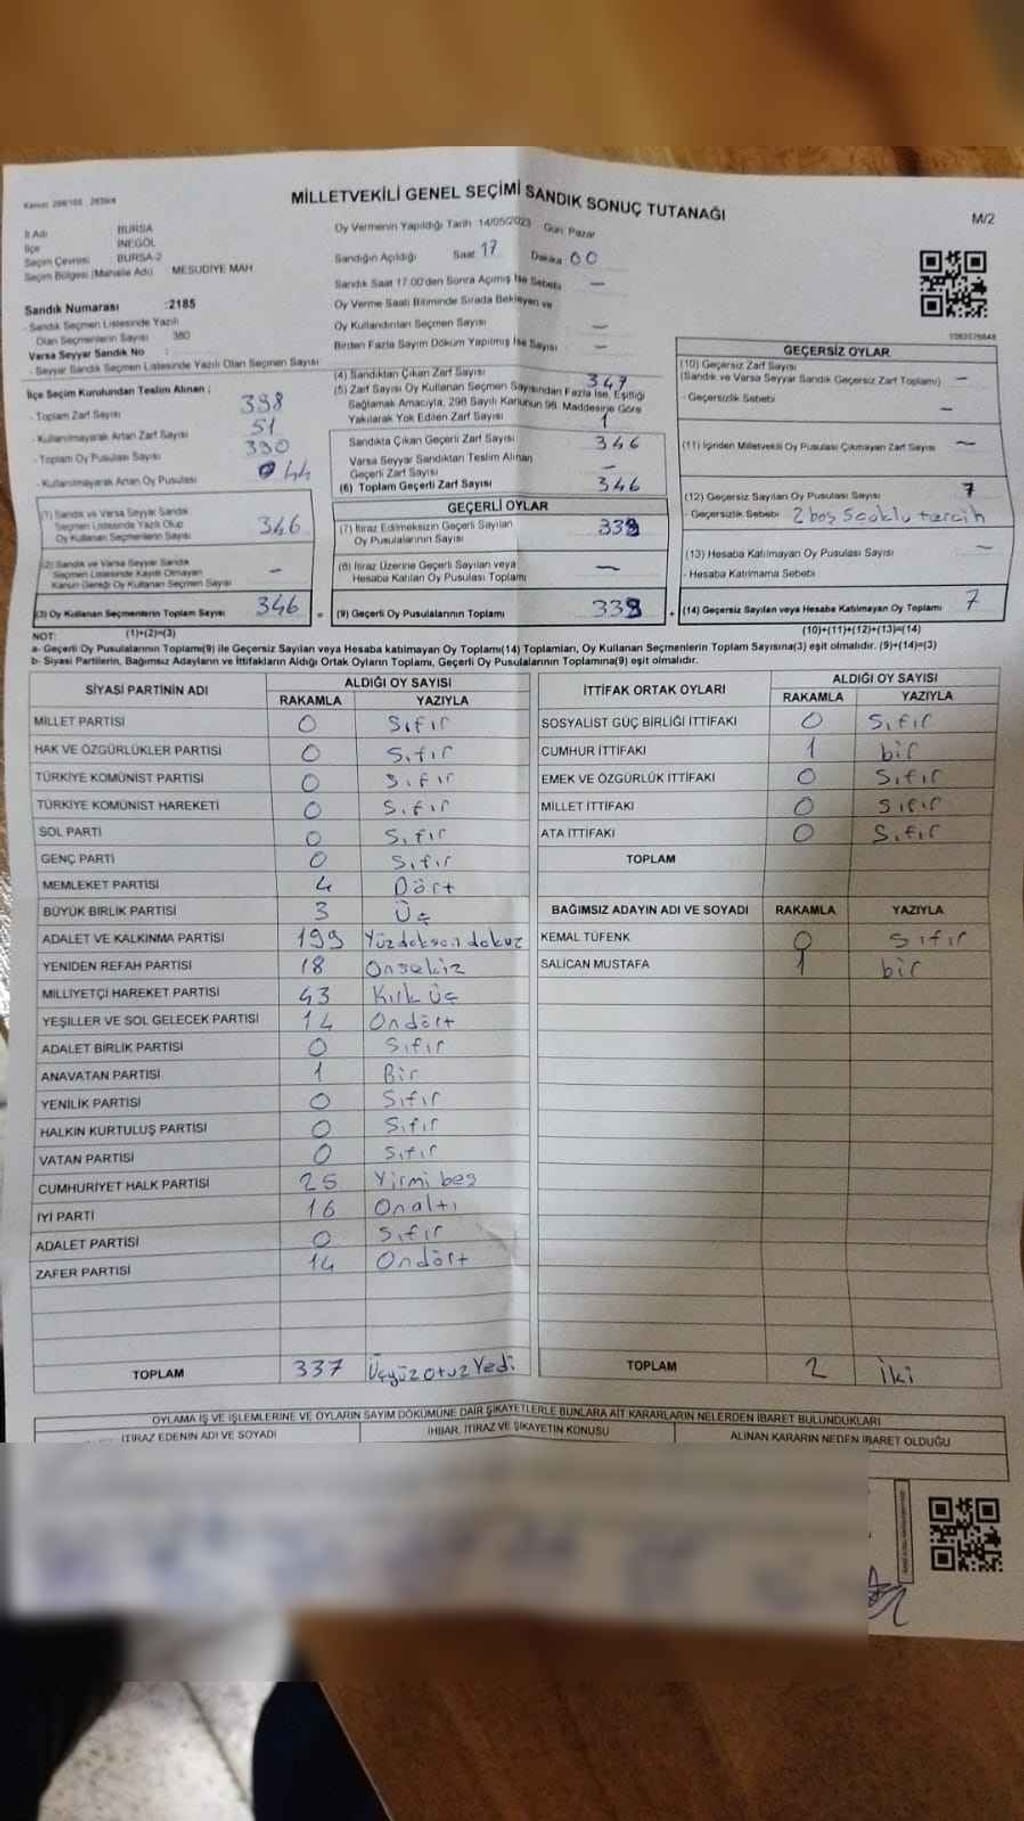 MİLLETVEKİLİ GENEL SEÇİMİ SANDIK SONUÇ TUTANAĞI
M/2
İl Adı BURSA
İlçe İNEGÖL
Seçim Çevresi BURSA-2
Seçim Bölgesi (Mahalle Adı) MESUDİYE MAH
Sandık Numarası :2185
- Sandık Seçmen Listesinde Yazılı
Olan Seçmenlerin Sayısı 380
Varsa Seyyar Sandık No :
- Seyyar Sandık Seçmen Listesinde Yazılı Olan Seçmen Sayısı
Oy Vermenin Yapıldığı Tarih 14/05/2023 Gün Pazar
Sandığın Açıldığı Saat 17 Dakika 00
Sandık Saat 17.00'den Sonra Açılmış İse Sebebi —
Oy Verme Saati Bitiminde Sırada Bekleyen ve
Oy Kullandırılan Seçmen Sayısı —
Birden Fazla Sayım Döküm Yapılmış İse Sayısı —
İlçe Seçim Kurulundan Teslim Alınan :
- Toplam Zarf Sayısı 398
- Kullanılmayarak Artan Zarf Sayısı 51
- Toplam Oy Pusulası Sayısı 390
- Kullanılmayarak Artan Oy Pusulası 44
(1) Sandık ve Varsa Seyyar Sandık
Seçmen Listesinde Yazılı Olup
Oy Kullanan Seçmenlerin Sayısı 346
(2) Sandık ve Varsa Seyyar Sandık
Seçmen Listesinde Kayıtlı Olmayan
Kanun Gereği Oy Kullanan Seçmen Sayısı -
(3) Oy Kullanan Seçmenlerin Toplam Sayısı 346
(4) Sandıktan Çıkan Zarf Sayısı 347
(5) Zarf Sayısı Oy Kullanan Seçmen Sayısından Fazla İse, Eşitliği
Sağlamak Amacıyla, 298 Sayılı Kanunun 98. Maddesine Göre
Yakılarak Yok Edilen Zarf Sayısı 1
Sandıkta Çıkan Geçerli Zarf Sayısı 346
Varsa Seyyar Sandıktan Teslim Alınan
Geçerli Zarf Sayısı —
(6) Toplam Geçerli Zarf Sayısı 346
GEÇERLİ OYLAR
(7) İtiraz Edilmeksizin Geçerli Sayılan
Oy Pusulalarının Sayısı 339
(8) İtiraz Üzerine Geçerli Sayılan veya
Hesaba Katılan Oy Pusulası Toplamı —
= (9) Geçerli Oy Pusulalarının Toplamı 339
GEÇERSİZ OYLAR
(10) Geçersiz Zarf Sayısı
(Sandık ve Varsa Seyyar Sandık Geçersiz Zarf Toplamı) —
- Geçersizlik Sebebi —
(11) İçinden Milletvekili Oy Pusulası Çıkmayan Zarf Sayısı —
(12) Geçersiz Sayılan Oy Pusulası Sayısı 7
- Geçersizlik Sebebi 2 boş 5 çoklu tercih
(13) Hesaba Katılmayan Oy Pusulası Sayısı —
- Hesaba Katılmama Sebebi
+ (14) Geçersiz Sayılan veya Hesaba Katılmayan Oy Toplamı 7
NOT: (1)+(2)=(3)
(10)+(11)+(12)+(13)=(14)
a- Geçerli Oy Pusulalarının Toplamı(9) ile Geçersiz Sayılan veya Hesaba katılmayan Oy Toplamı(14) Toplamları, Oy Kullanan Seçmenlerin Toplam Sayısına(3) eşit olmalıdır. (9)+(14)=(3)
b- Siyasi Partilerin, Bağımsız Adayların ve İttifakların Aldığı Ortak Oyların Toplamı, Geçerli Oy Pusulalarının Toplamına(9) eşit olmalıdır.
SİYASİ PARTİNİN ADI ALDIĞI OY SAYISI
RAKAMLA YAZIYLA
MİLLET PARTİSİ 0 Sıfır
HAK VE ÖZGÜRLÜKLER PARTİSİ 0 Sıfır
TÜRKİYE KOMÜNİST PARTİSİ 0 Sıfır
TÜRKİYE KOMÜNİST HAREKETİ 0 Sıfır
SOL PARTİ 0 Sıfır
GENÇ PARTİ 0 Sıfır
MEMLEKET PARTİSİ 4 Dört
BÜYÜK BİRLİK PARTİSİ 3 Üç
ADALET VE KALKINMA PARTİSİ 199 Yüzdoksan dokuz
YENİDEN REFAH PARTİSİ 18 Onsekiz
MİLLİYETÇİ HAREKET PARTİSİ 43 Kırk üç
YEŞİLLER VE SOL GELECEK PARTİSİ 14 Ondört
ADALET BİRLİK PARTİSİ 0 Sıfır
ANAVATAN PARTİSİ 1 Bir
YENİLİK PARTİSİ 0 Sıfır
HALKIN KURTULUŞ PARTİSİ 0 Sıfır
VATAN PARTİSİ 0 Sıfır
CUMHURİYET HALK PARTİSİ 25 Yirmi beş
İYİ PARTİ 16 Onaltı
ADALET PARTİSİ 0 Sıfır
ZAFER PARTİSİ 14 Ondört
TOPLAM 337 Üçyüz otuz Yedi
İTTİFAK ORTAK OYLARI ALDIĞI OY SAYISI
RAKAMLA YAZIYLA
SOSYALİST GÜÇ BİRLİĞİ İTTİFAKI 0 Sıfır
CUMHUR İTTİFAKI 1 bir
EMEK VE ÖZGÜRLÜK İTTİFAKI 0 Sıfır
MİLLET İTTİFAKI 0 Sıfır
ATA İTTİFAKI 0 Sıfır
TOPLAM
BAĞIMSIZ ADAYIN ADI VE SOYADI RAKAMLA YAZIYLA
KEMAL TÜFENK 0 Sıfır
SALİCAN MUSTAFA 1 bir
TOPLAM 2 İki
OYLAMA İŞ VE İŞLEMLERİNE VE OYLARIN SAYIM DÖKÜMÜNE DAİR ŞİKAYETLERLE BUNLARA AİT KARARLARIN NELERDEN İBARET BULUNDUKLARI
İTİRAZ EDENİN ADI VE SOYADI İHBAR, İTİRAZ VE ŞİKAYETİN KONUSU ALINAN KARARIN NEDEN İBARET OLDUĞU